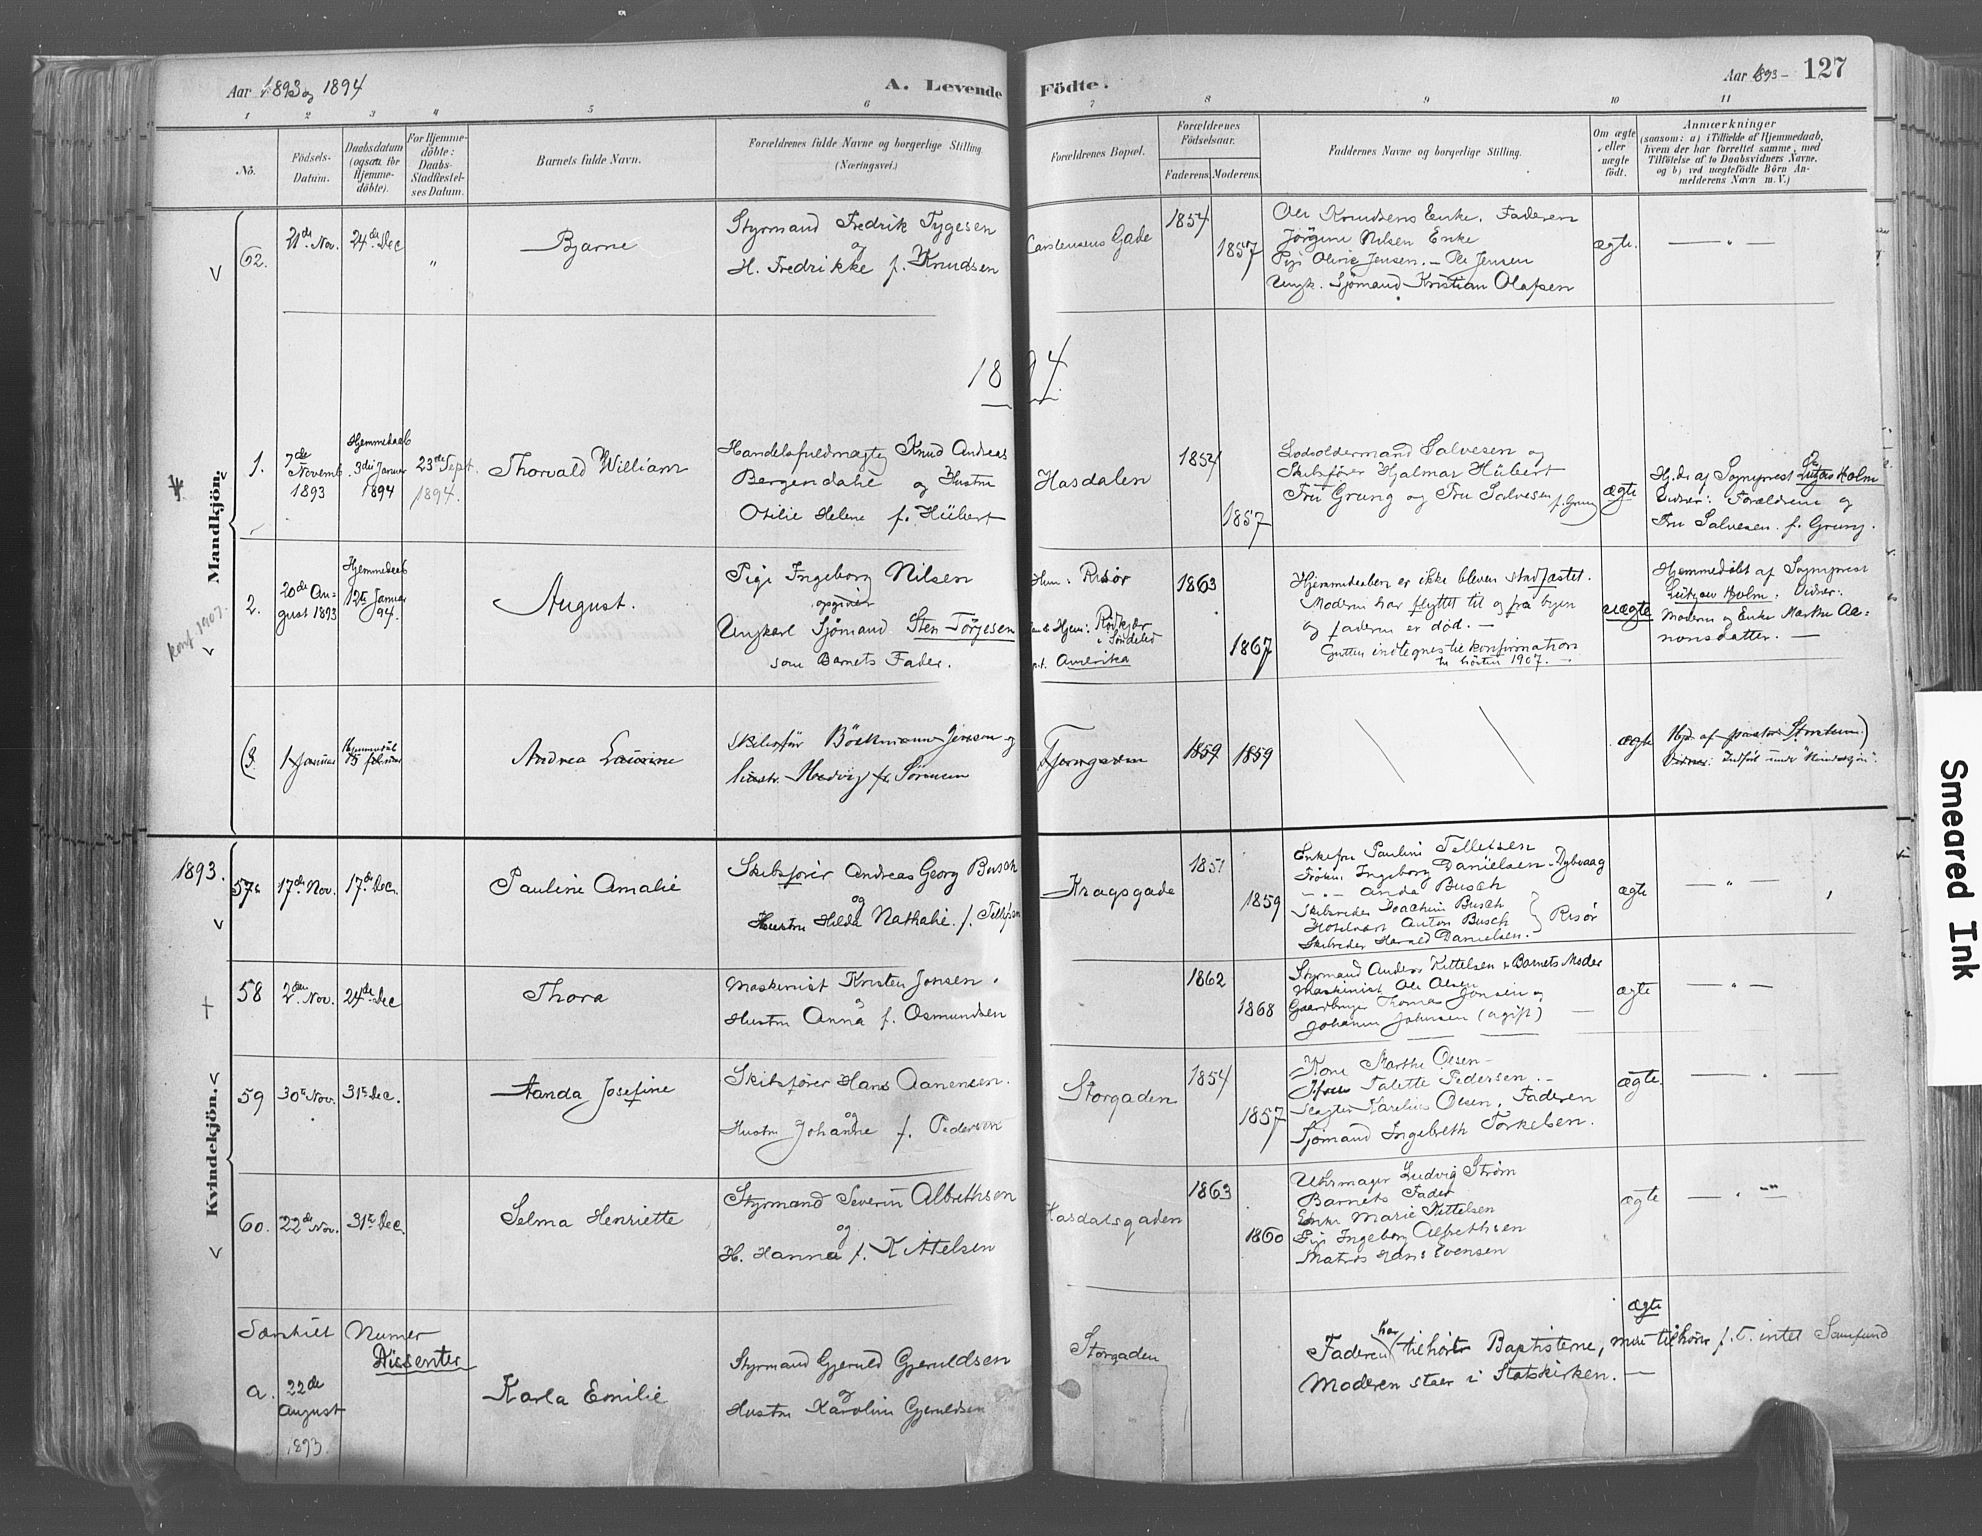 Aar 1893 og 1894
A. Levende Födte.
Aar 1893 – 127
1 2 3 4 5 6 7 8 9 10 11
No.
Födsels-
Datum.
Daabsdatum
(ogsaa for
Hjemme-
döbte).
For Hjemme-
döbte:
Daabs-
Stadfæstel-
ses Datum.
Barnets fulde Navn.
Forældrenes fulde Navne og borgerlige Stilling
(Næringsvei.)
Forældrenes Bopæl.
Forældrenes
Födselsaar.
Faderens. Moderens.
Faddernes Navne og borgerlige Stilling.
Om ægte
eller
uægte
födt.
Anmærkninger
(saasom: a) i Tilfælde af Hjemmedaab,
hvem der har forrettet samme, med
Tilföielse af to Daabsvidners Navne,
og b) ved uægtefödte Börn An-
melderens Navn m. V.)
Mandkjön.
62.
21de Nov.
24de Dec
"
Bjarne
Styrmand Fredrik Tygesen
og
H. Fredrikke f. Knudsen
Carstensens Gade
1854
1857
Ole Knudsens Enke. Faderen
Jörgine Nilsen Enke
Pige Olivie Jensen. – Ole Jensen
Ungk. Sjömand Kristian Olafsen
ægte.
— " —
1894.
1.
7de
Novemb
1893
Hjemmedaab
3die Januar
1894
23de Sept.
1894.
Thorvald William
Handelsfuldmægtig Knud Andreas
Bergendahl og Hustru
Otilie Helene f. Hübert
Hasdalen
1854
1857
Lodsoldermand Salvesen og
Skibsfører Hjalmar Hübert
Fru Grung og Fru Salvesen f. Grung
ægte
Hj.d. af Sogneprest Lützow Holm
Vidner: Forældrene og
Fru Salvesen f. Grung.
konf 1907.
2.
20de Au-
gust 1893
Hjemmedaab
12te Januar
94.
August.
Pige Ingeborg Nilsen
opgiver
Ungkarl Sjömand Sten Törgesen
som Barnets Fader.
Hun: Risør
Hjem: Rödkjær
i Söndeled
Amerika
1863
1867
Hjemmedaaben er ikke bleven stadfæstet.
Moderen har flyttet til og fra byen
og faderen er død. —
Gutten indtegnes til konfirmation
til høsten 1907. —
uægte
Hjemmedøbt af Sogneprest
Lützow Holm: Vidner:
Moderen og Enke Marthe Aa-
nonsdatter. —
(3.
1 Januar
Hjemmedøbt
15 februar
Andrea Laurine
Skibsfør Böckmann Jensen og
hustr. Hedvig f. Sörensen
Tjerngaden
1859
1859
ægte
Hjd. af pastor Storstein.)
Vidner: Indført under "Kvindekjön".
Kvindekjön.
1893.
57.
17de Nov.
17de Dec.
Pauline Amalie
Skibsfører Andreas Georg Busch
og
Hustru Hilda Nathalie f. Tellefsen
Kragsgade
1851
1859
Enkefru Pauline Tellefsen
Frøken Ingeborg Danielsen - Dybvaag
— " — Anda Busch
Skibsreder Joachim Busch
Hotelvært Anton Busch } Risør
Skibsreder Harald Danielsen.
ægte
— " —
58
2den Nov.
24de Dec
Thora
Maskinist Kristen Jonsen.
og
Hustru Anna f. Osmundsen
1862
1868
Styrmand Anders Kittelsen & Barnets Moder
Maskinist Ole Olsen
Gaardbruger Thomas Jonsen og
Johanne Johnsen (ugift) —
ægte
— " —
59
30te Nov.
31te Dec.
Aanda Josefine
Skibsfører Hans Aanensen.
og
Hustru Johanne f. Pedersen
Storgaden
1854
1857
Kone Marthe Olsen –
Talette Pedersen. –
Slagter Karelius Olsen, Faderen
Sjömand Ingebreth Torkelsen.
ægte.
— . —
60.
22de Nov.
31te Dec.
Selma Henriette
Styrmand Severin Albrethsen
og
H. Hanna f. Kittelsen
Hasdalsgaden
1863
1860
Uhrmager Ludvig Ström
Barnets Fader
Enke Marie Kittelsen
Pige Ingeborg Albrethsen
Matros Hans Evensen
ægte
— " —
Særskilt Numer
Dissenter
a.
22de
August
1893
Karla Emilie
Styrmand Gjeruld Gjeruldsen
og
Hustru Karoline Gjeruldsen
Storgaden
ægte
har
Faderen tilhört Baptisterne, men tilhører f. T. intet Samfund
Moderen staar i Statskirken. —
Smeared Ink